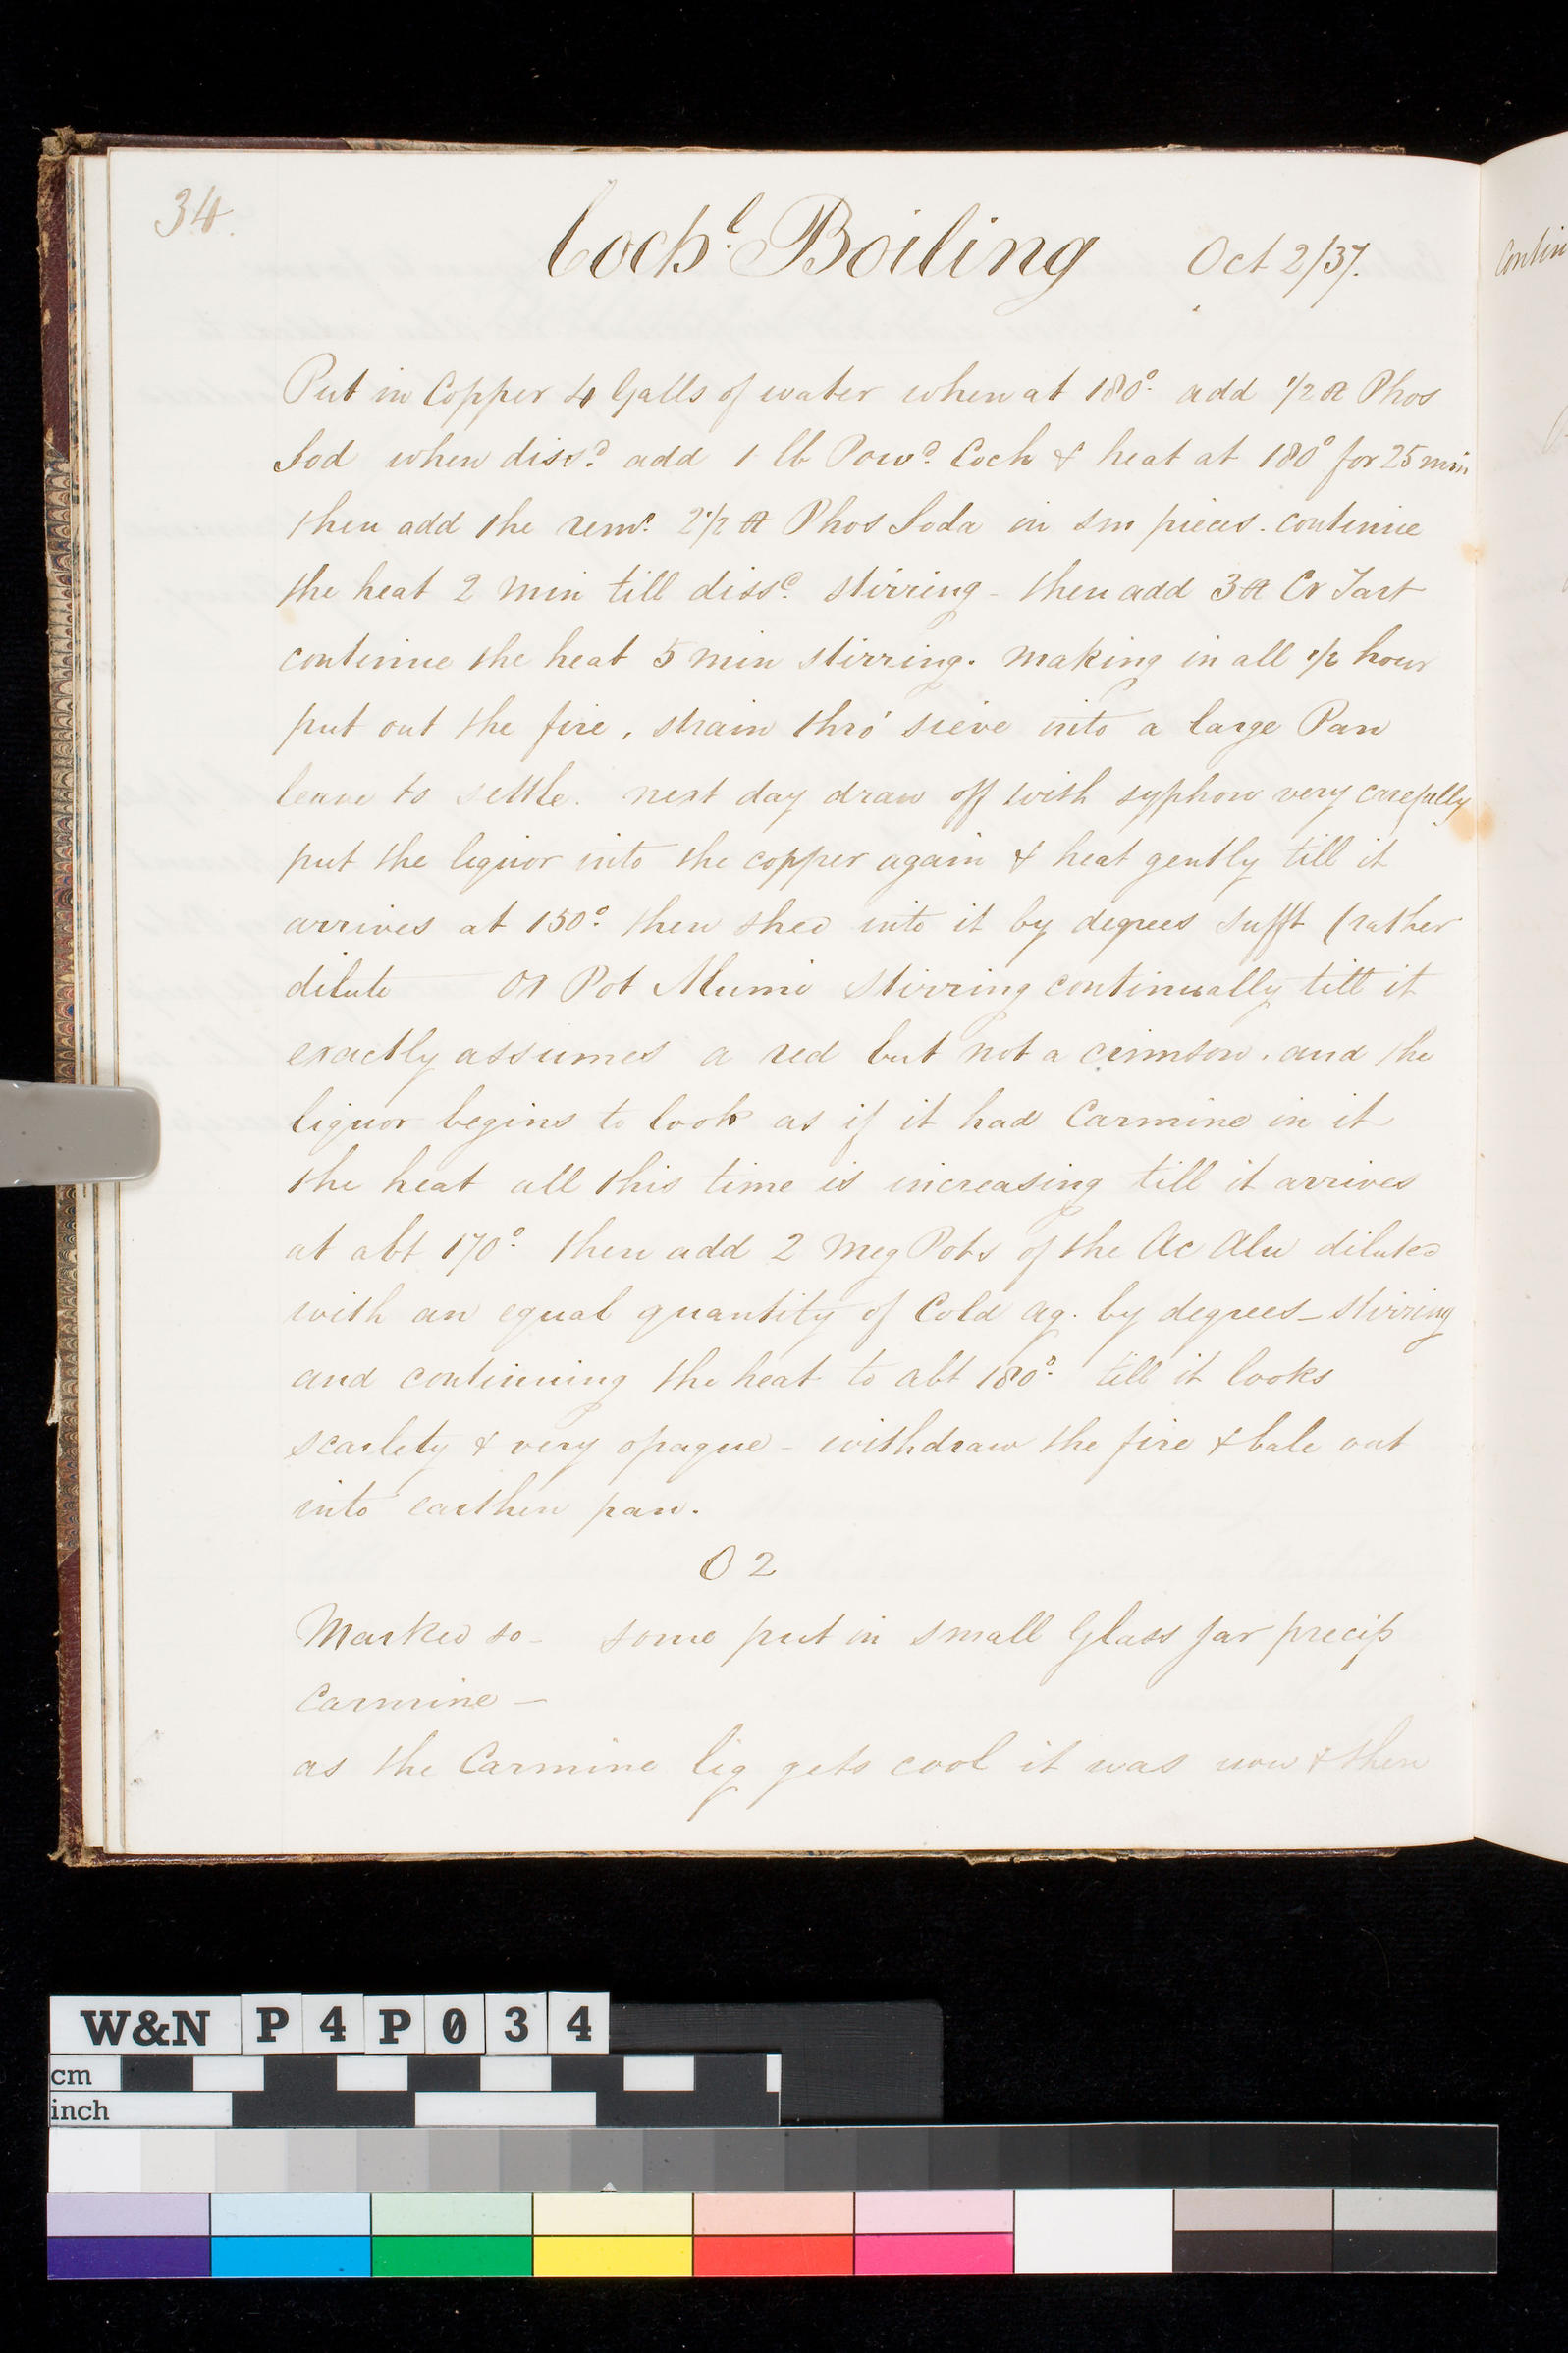 34.
Coch.l Boiling Oct 2/37.
Contin
Put in Copper 4 Galls of water when at 180° add 1/2 ℔ Phos
Sod when diss.d add 1 lb Pow.d Coch & heat at 180° for 25 min
then add the rem.g 2 1/2 ℔ Phos Soda in sm pieces. continue
the heat 2 min till diss.d stirring - then add 3 ℔ Cr Tart
continue the heat 5 min stirring. making in all 1/2 hour
put out the fire, strain thro' sieve into a large Pan
leave to settle. next day draw off with syphon very carefully
put the liquor into the copper again & heat gently till it
arrives at 150° then shed into it by degrees sufft (rather
dilute Pot Alumi stirring continually till it
exactly assumes a red but not a crimson. and the
liquor begins to look as if it had Carmine in it
the heat all this time is increasing till it arrives
at abt 170° then add 2 Meg Pots of the Ac Alu diluted
with an equal quantity of Cold aq. by degrees - stirring
and continuing the heat to abt 180° till it looks
scarlety & very opaque - withdraw the fire & bale out
into earthen pan.
O 2
Marked so - some put in small Glass Jar precip
Carmine -
as the Carmine liq gets cool it was now & then
W&N P4P034
cm
inch